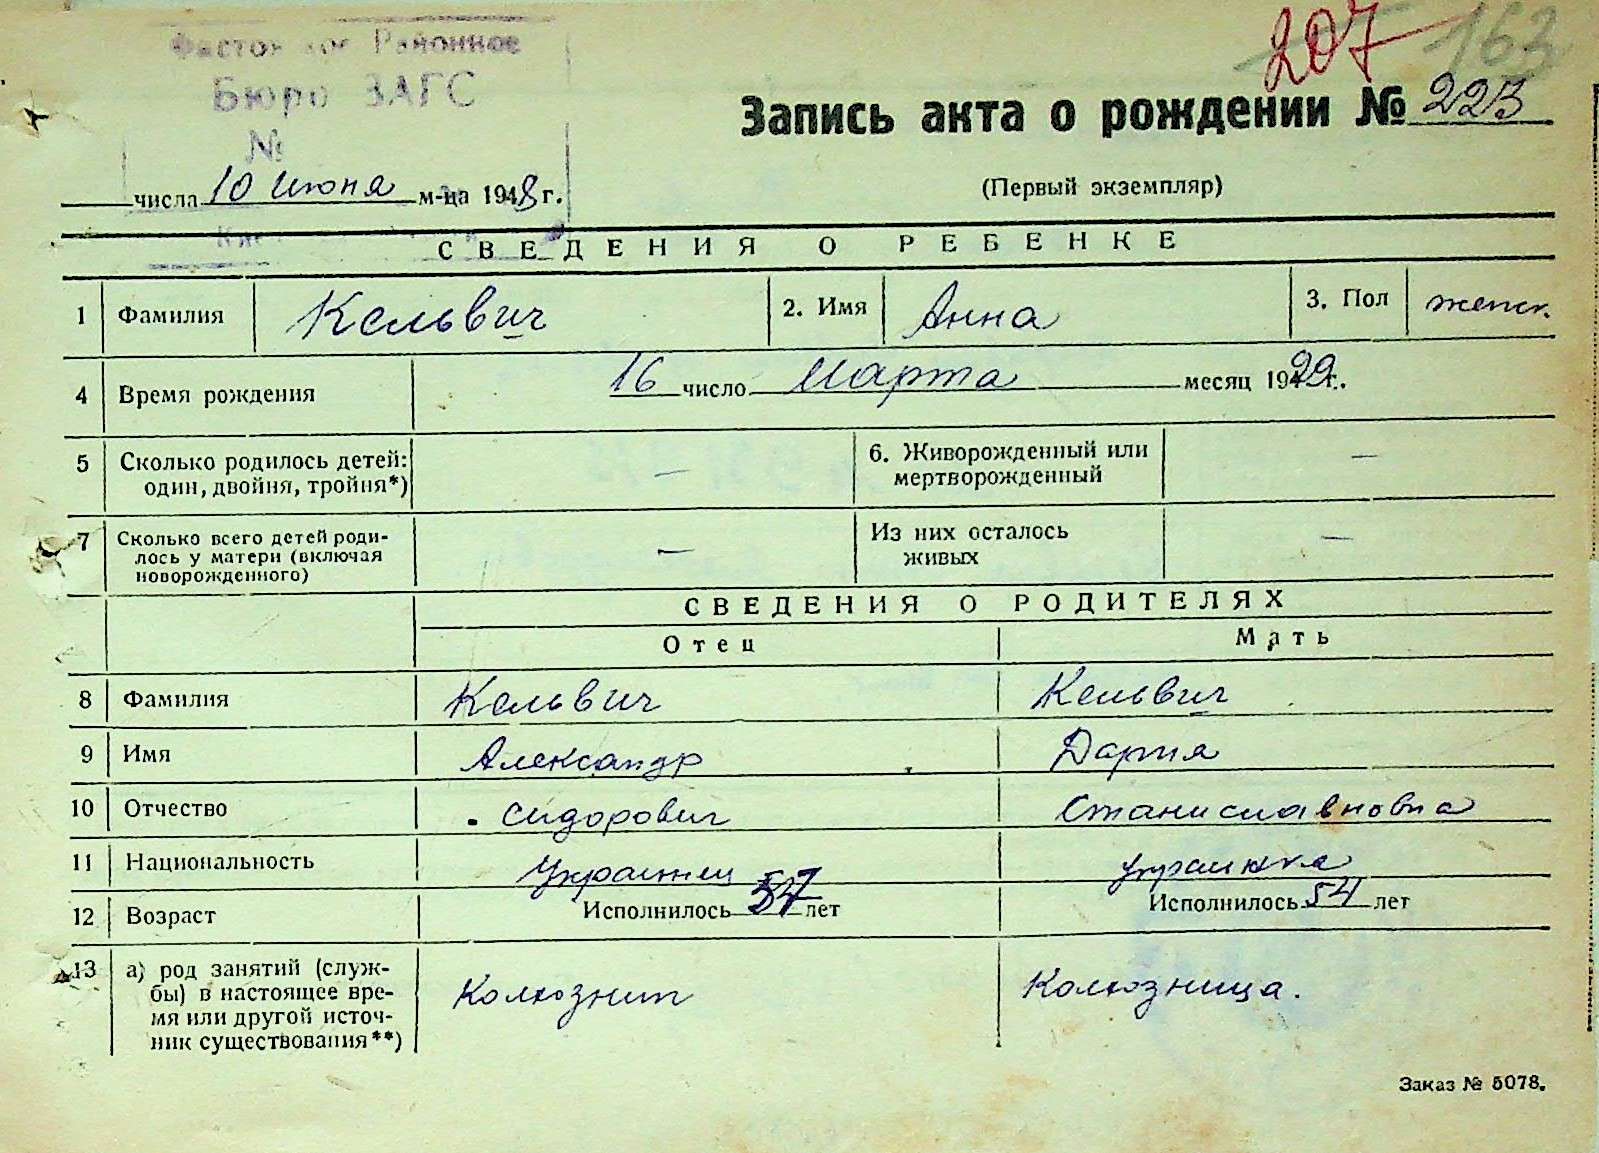 207 163
Районное
Бюро ЗАГС
№
Запись акта о рождении № 223
числа 10 июня м-ца 1948 г.
(Первый экземпляр)
СВЕДЕНИЯ О РЕБЕНКЕ
1 Фамилия Кельвич 2. Имя Анна 3. Пол женск.
4 Время рождения 16 число марта месяц 1929 г.
5 Сколько родилось детей: — 6. Живорожденный или —
один, двойня, тройня*) мертворожденный
7 Сколько всего детей роди- — Из них осталось —
лось у матери (включая живых
новорожденного)
СВЕДЕНИЯ О РОДИТЕЛЯХ
Отец Мать
8 Фамилия Кельвич Кельвич
9 Имя Александр Дария
10 Отчество Сидорович Станиславновна
11 Национальность Украинец украинка
12 Возраст Исполнилось 57 лет Исполнилось 54 лет
13 а) род занятий (служ- Колхозник Колхозница.
бы) в настоящее вре-
мя или другой источ-
ник существования**)
Заказ № 5078.